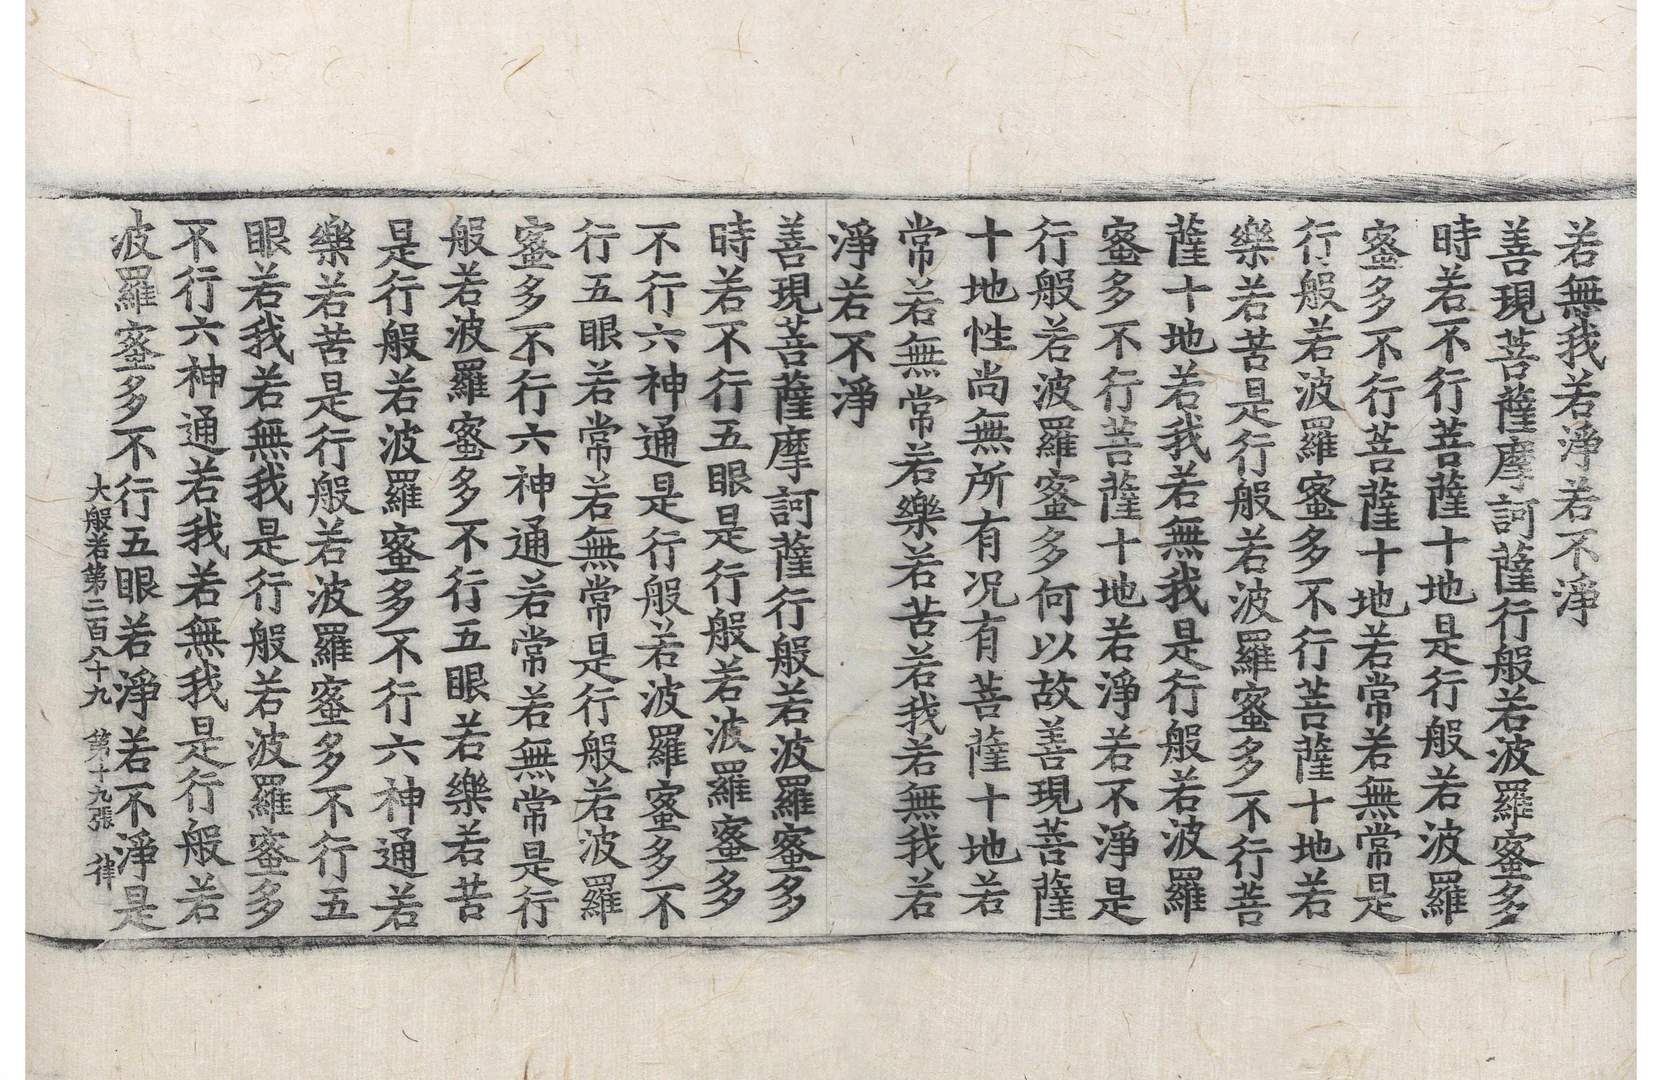 若無我若淨若不淨
善現菩薩摩訶薩行般若波羅蜜多
時若不行菩薩十地是行般若波羅
蜜多不行菩薩十地若常若無常是
行般若波羅蜜多不行菩薩十地若
樂若苦是行般若波羅蜜多不行菩
薩十地若我若無我是行般若波羅
蜜多不行菩薩十地若淨若不淨是
行般若波羅蜜多何以故善現菩薩
十地性尚無所有况有菩薩十地若
常若無常若樂若苦若我若無我若
淨若不淨
善現菩薩摩訶薩行般若波羅蜜多
時若不行五眼是行般若波羅蜜多
不行六神通是行般若波羅蜜多不
行五眼若常若無常是行般若波羅
蜜多不行六神通若常若無常是行
般若波羅蜜多不行五眼若樂若苦
是行般若波羅蜜多不行六神通若
樂若苦是行般若波羅蜜多不行五
眼若我若無我是行般若波羅蜜多
不行六神通若我若無我是行般若
波羅蜜多不行五眼若淨若不淨是
大般若第二百八十九 第十九張 律